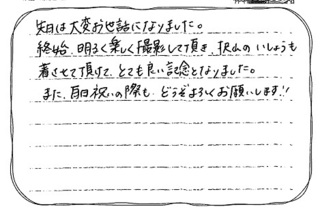 先日は大変お世話になりました。
終始、明るく楽しく撮影して頂き、沢山のいしょうも
着させて頂けて、とても良い記念となりました。
また、百日祝いの際も、どうぞよろしくお願いします!!